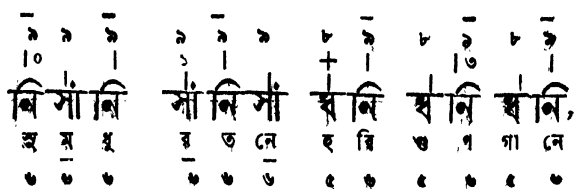 ৯ ৯ ৯ ৯ ৯ ৯ ৮ ৯ ৮ ৯ ৮ ৯
০ ১ + ৩
নি র্সা নি র্সা নি র্সা ধ নি ধ নি ধ নি,
সু ম ধু র ত নে হ রি গু ণ গা নে
৬ ৬ ৬ ৬ ৬ ৬ ৫ ৬ ৫ ৬ ৫ ৬